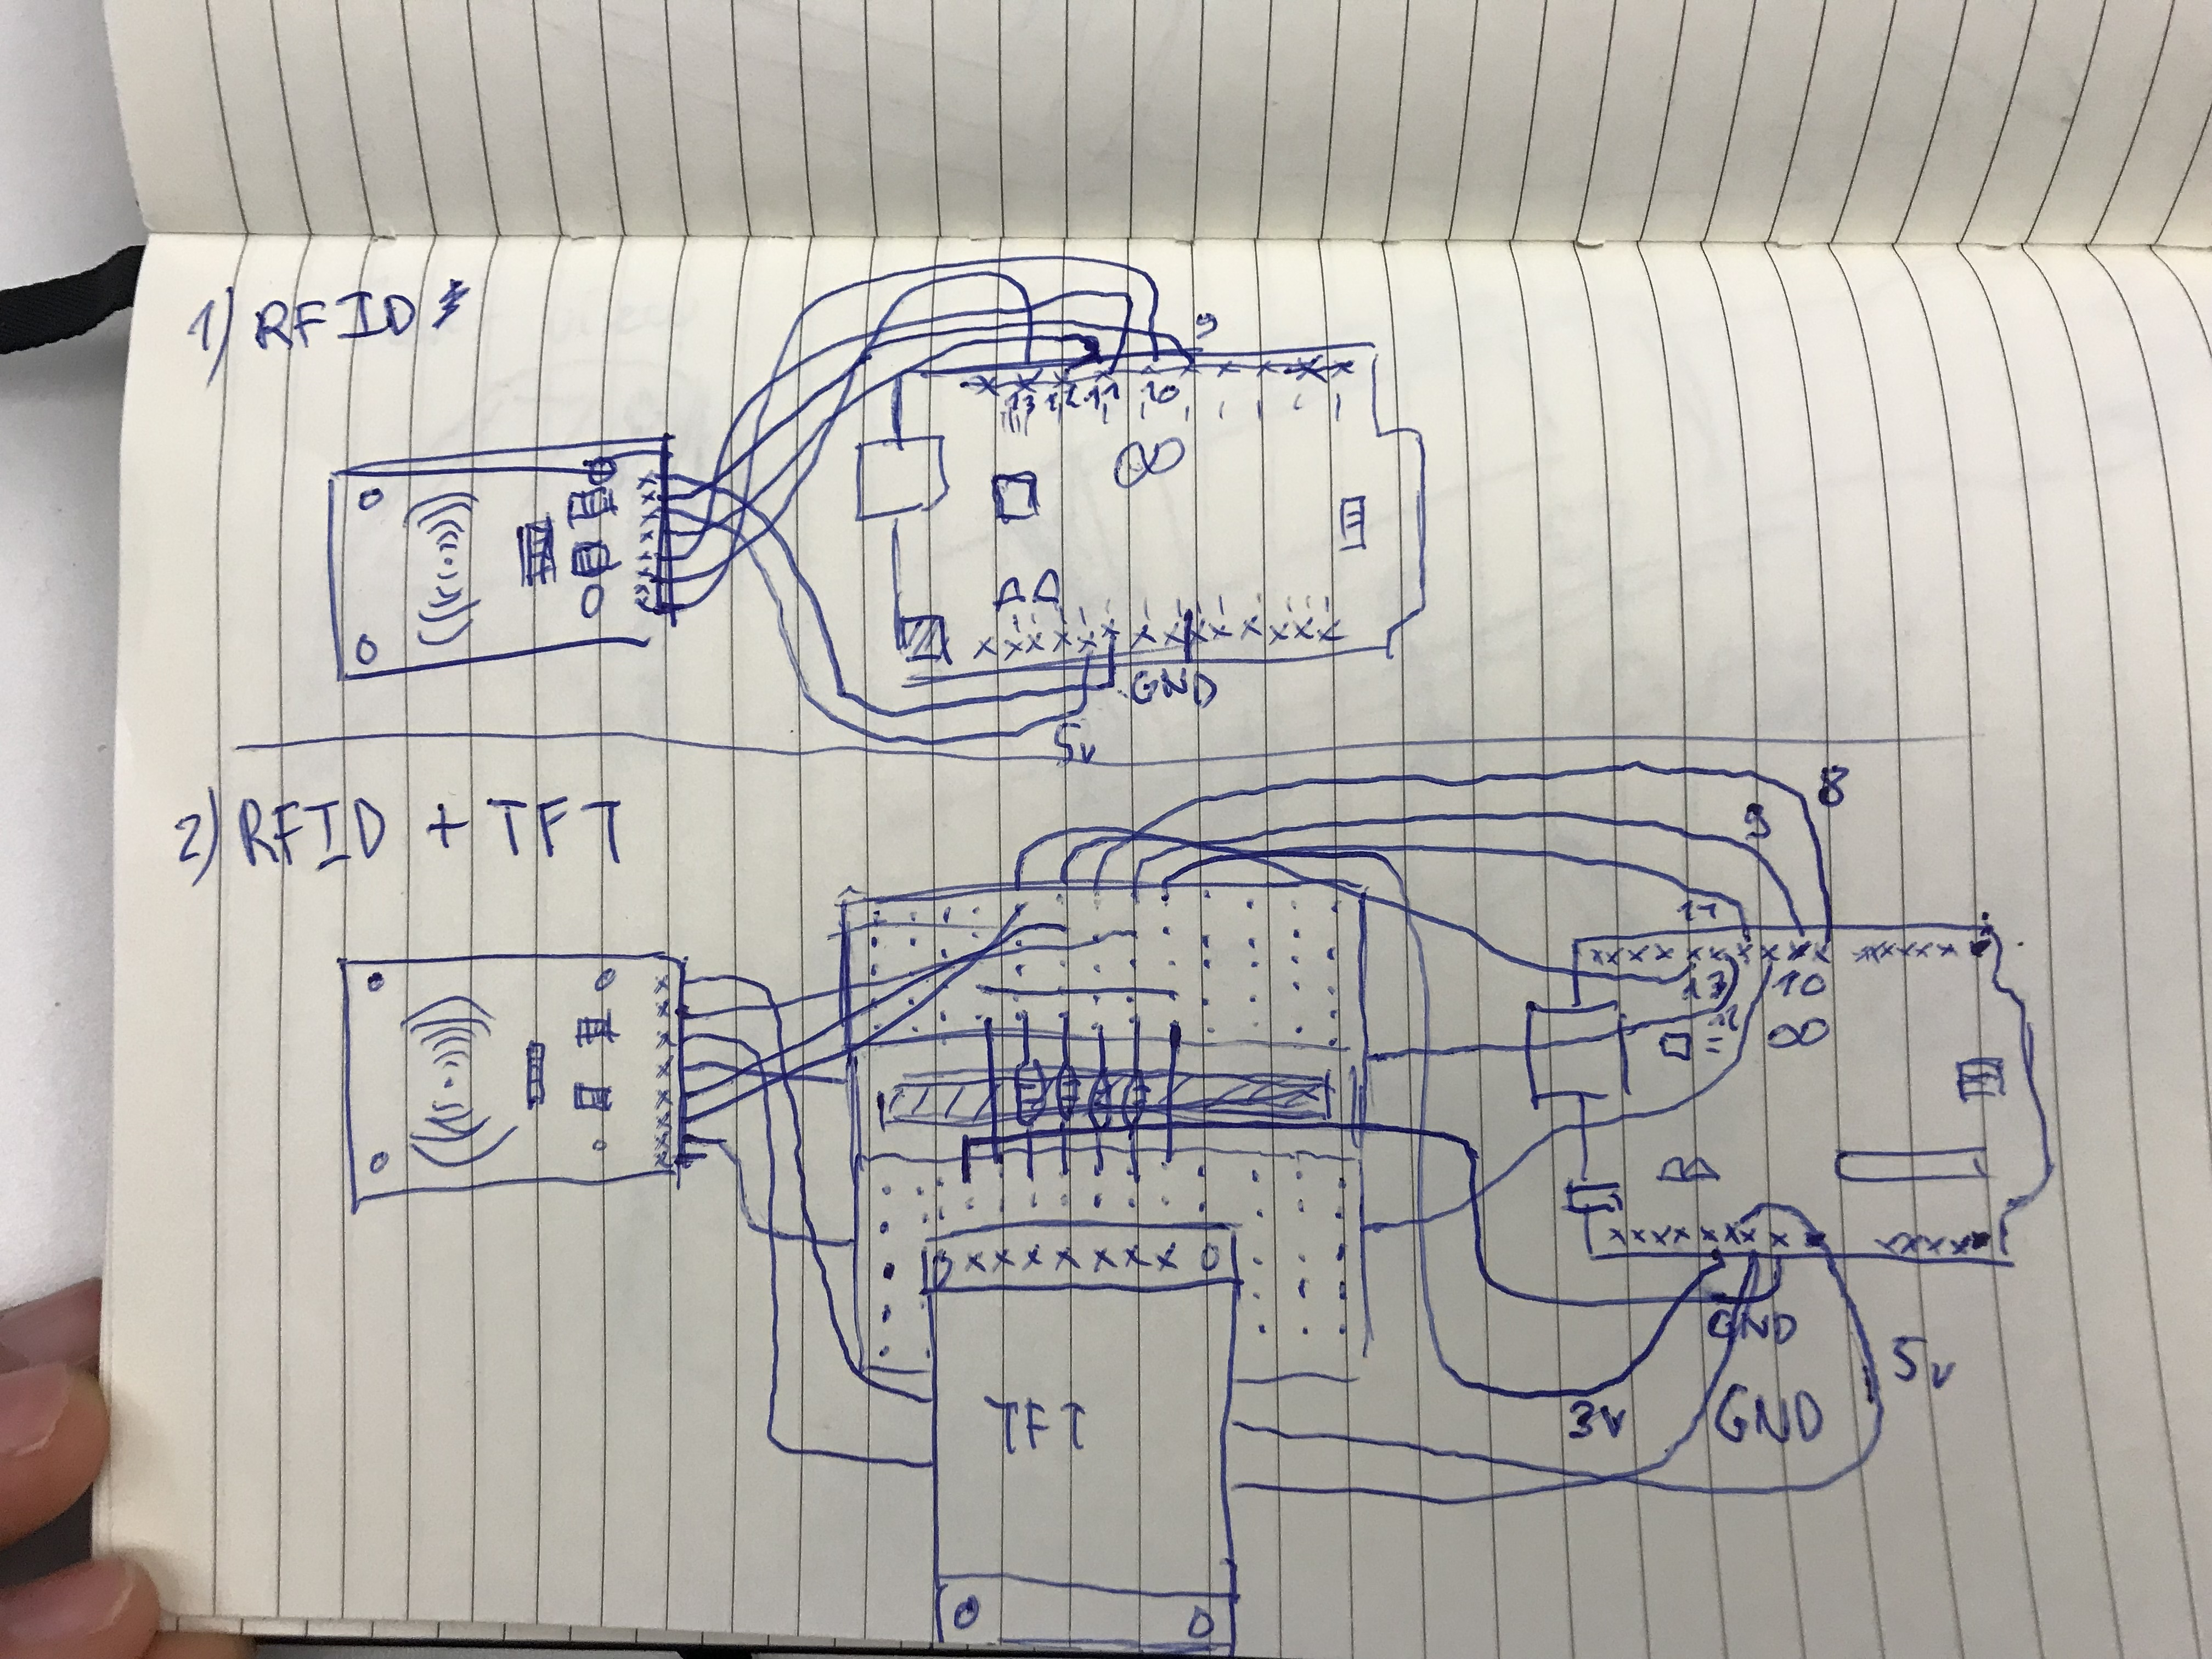 1) RFID
9
13 12 11 10
GND
5v
2) RFID + TFT
8
9
11
13 10
12
GND
5v
3v GND
TFT